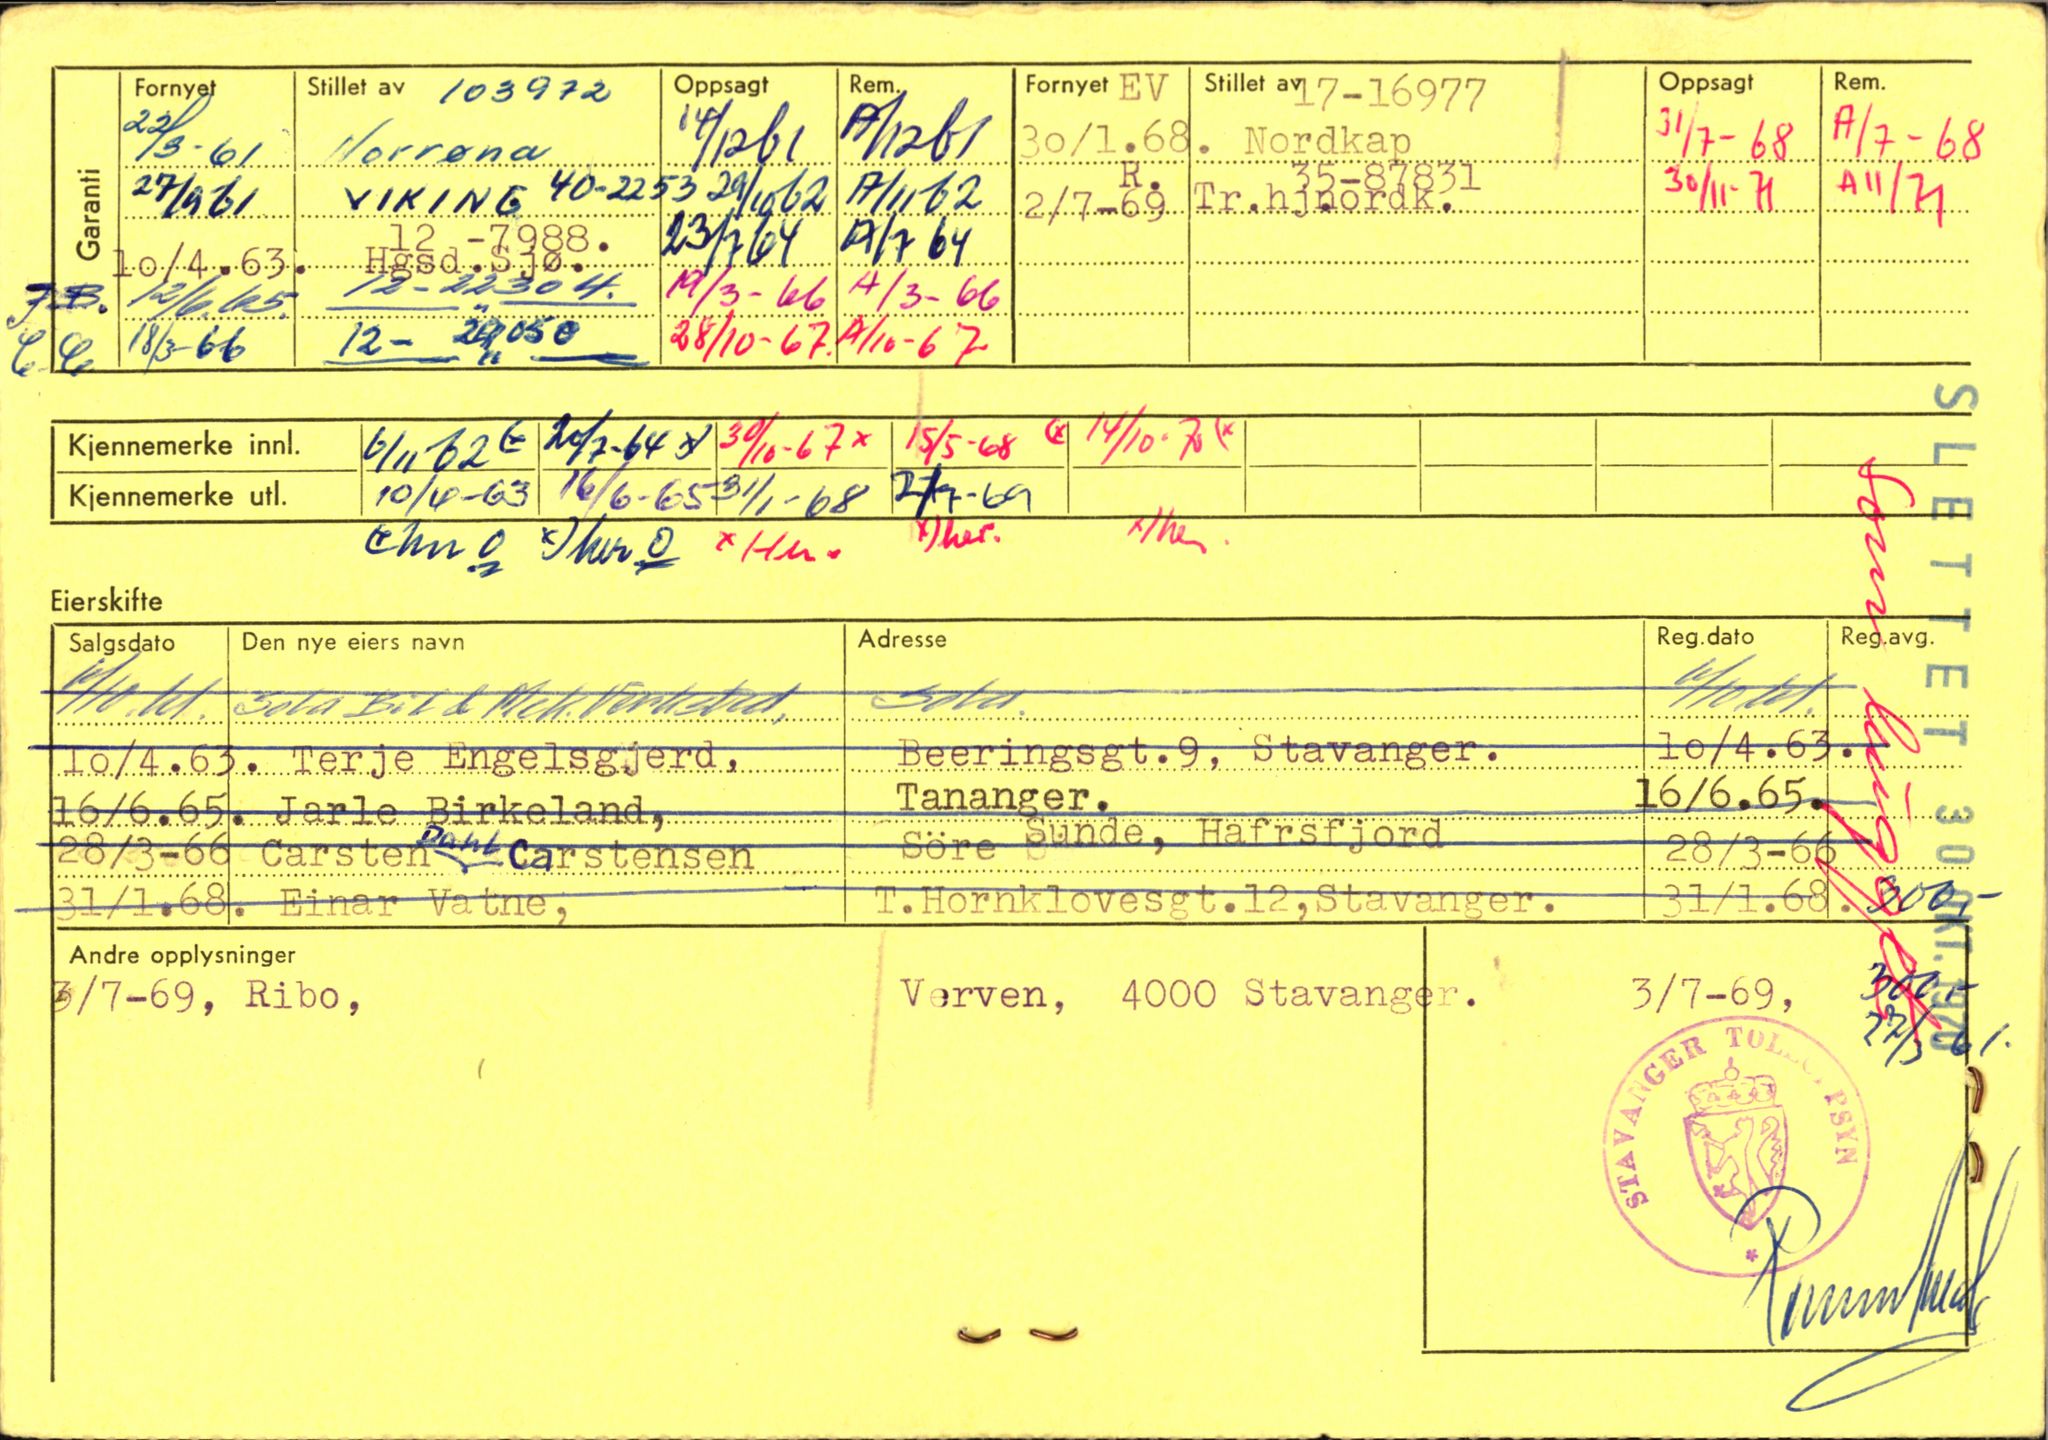 Garanti
Fornyet Stillet av 103972 Oppsagt Rem. Fornyet EV Stillet av 17-16977 Oppsagt Rem.
22/3-61 Norrøna 14/12 61 A/12 61 30/1.68. Nordkap 31/7-68 A/7-68
27/9 61 VIKING 40-2253 29/10 62 A/11 62 R. 35-87831 30/11-71 A 11/71
2/7-69 Tr.hjnordk.
12 -7988. 23/7 64 A/7 64
10/4.63. Hgsd.Sjø.
12/6.65. 12-22304. 19/3-66 A/3-66
18/3-66 12- 050 28/10-67. A/10-67
Kjennemerke innl. 6/11 62 20/7-64 x) 30/10-67 x 15/5-68 (x 14/10-70 (x
Kjennemerke utl. 10/4-63 16/6-65 31/1-68 2/7-69
x)her. x)her.
Eierskifte
Salgsdato Den nye eiers navn Adresse Reg.dato Reg.avg.
Sola Bil & Mek. Verksted, Sola.
10/4.63. Terje Engelsgjerd, Beeringsgt.9, Stavanger. 10/4.63.
16/6.65. Jarle Birkeland, Tananger. 16/6.65.
28/3-66 Carsten Dahl Carstensen Söre Sunde, Hafrsfjord 28/3-66
31/1.68. Einar Vatne, T.Hornklovesgt.12,Stavanger. 31/1.68. 300,-
Andre opplysninger
3/7-69, Ribo, Verven, 4000 Stavanger. 3/7-69, 300,-
27/3 61.
SLETTET 30 OKT. 1970
STAVANGER TOLLOPPSYN